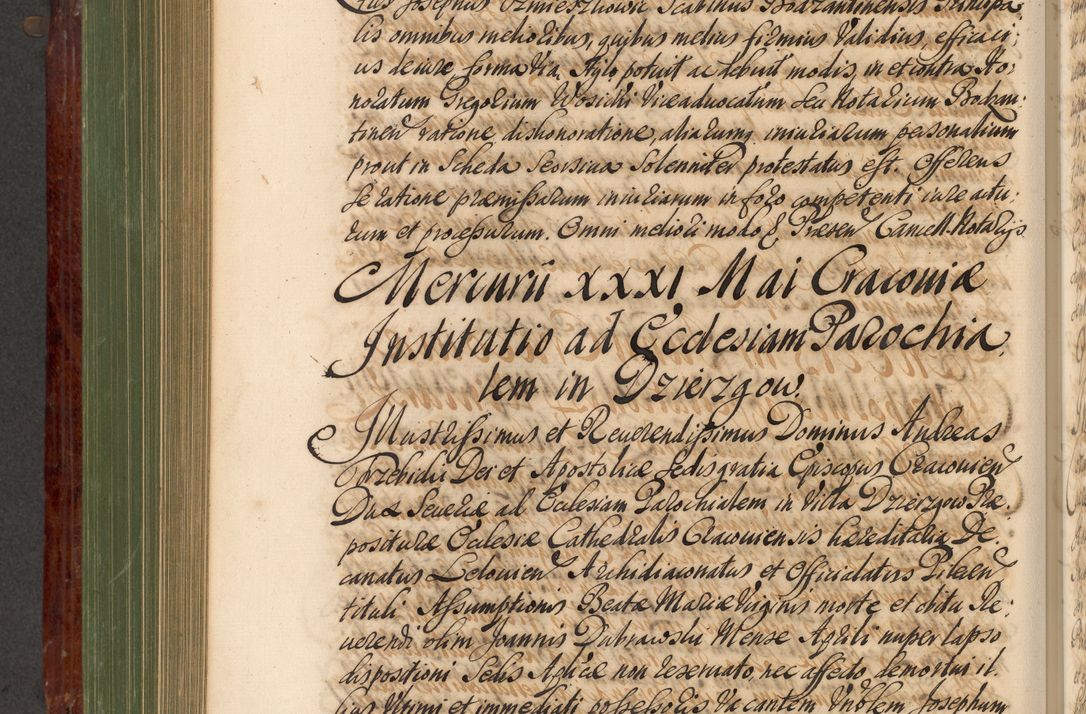 tus Josephus Ozmieszkowic Scabinus Bodzantinensis Principa
lis omnibus melioribus, quibus melius firmius Validius, efficaci,
us de iure forma Via, Stylo potuit ac debuit modis, in et contra Ho,
noratum Gregorium Wosicki Viceaduocatum seu Notarium Bodzan,
tinen ratione dishonoratione, aliarumq iniuriarum personalium
prout in Scheda Seorsiua Solenniter protestatus est. Offerens
se ratione præmissarum iniuriarum in foro competenti iure actu,
rum et processurum. Omni meliori modo Præsen Cancell. Notarijs
Mercurii XXXI Mai Cracouiæ
Institutio ad Ecclesiam Parochia,
lem in Dzierzgow.
Illustrissimus et Reuerendissimus Dominus Andreas
Trzebicki Dei et Apostolicæ Sedis gratia Episcopus Cracouien
Dux Seueriæ ad Ecclesiam Parochialem in Villa Dzierzgow Præ,
posituræ Ecclesiæ Cathedralis Cracouiensis hæreditaria De,
canatus Lelouien Archidiaconatus et Officialatus Pilcen
tituli Assumptionis Beatæ Mariæ Virginis morte et obitu Re,
uerendi olim Joannis Dabrawski Mense Aprili nuper lapso
dispositioni Sedis Aplicæ non reseruato, nec affecto, demortui il,
lius Vltimi et immediati possessoris Vacantem Vnoblem Josephum